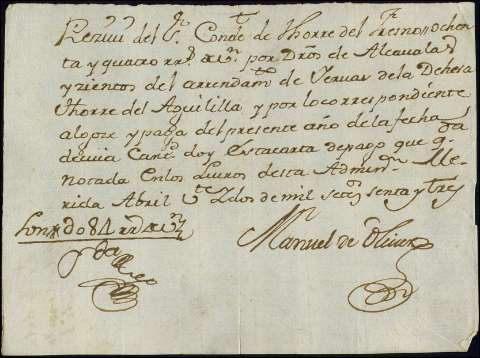 Rezivi del Sr. Conde de Thorre del Fresno ochen
ta y quatro rrs. de vn. por Dros de Alcavalas
y zientos del arrendamto. de Yervas de la Dehesa
Thorre del Aguililla y por lo correspondiente
al goze y paga del presente año de la fecha
devia Cantd. doy esta carta de pago que qda
notada en los Livros desta Adminon. Me
rida Abril 2 dos de mil setezs. sesenta y tres
Son 84 rrs. de vn.
Manuel de Olivera